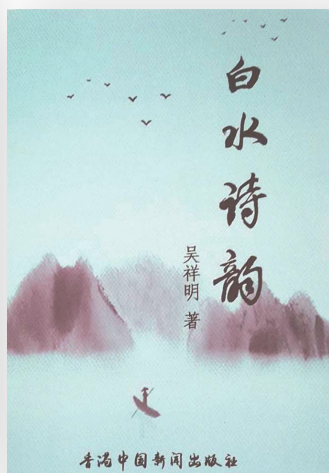 白水诗韵
吴祥明 著
香港中国新闻出版社